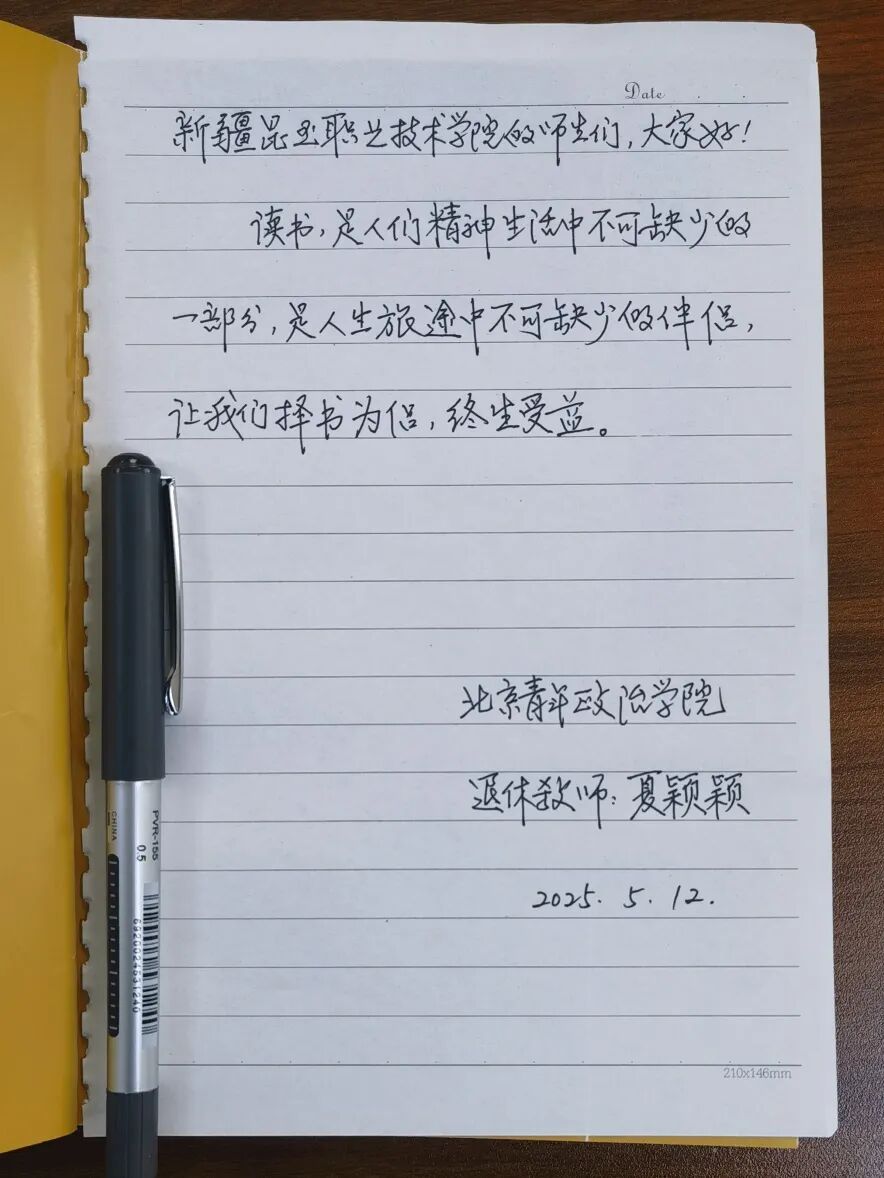 Date
新疆昆玉职业技术学院的师生们，大家好！
读书，是人们精神生活中不可缺少的
一部分，是人生旅途中不可缺少的伴侣，
让我们择书为侣，终生受益。
北京青年政治学院
退休教师：夏颖颖
2025.5.12.
PVR-155 0.5
CHINA
6920024531240
210x146mm